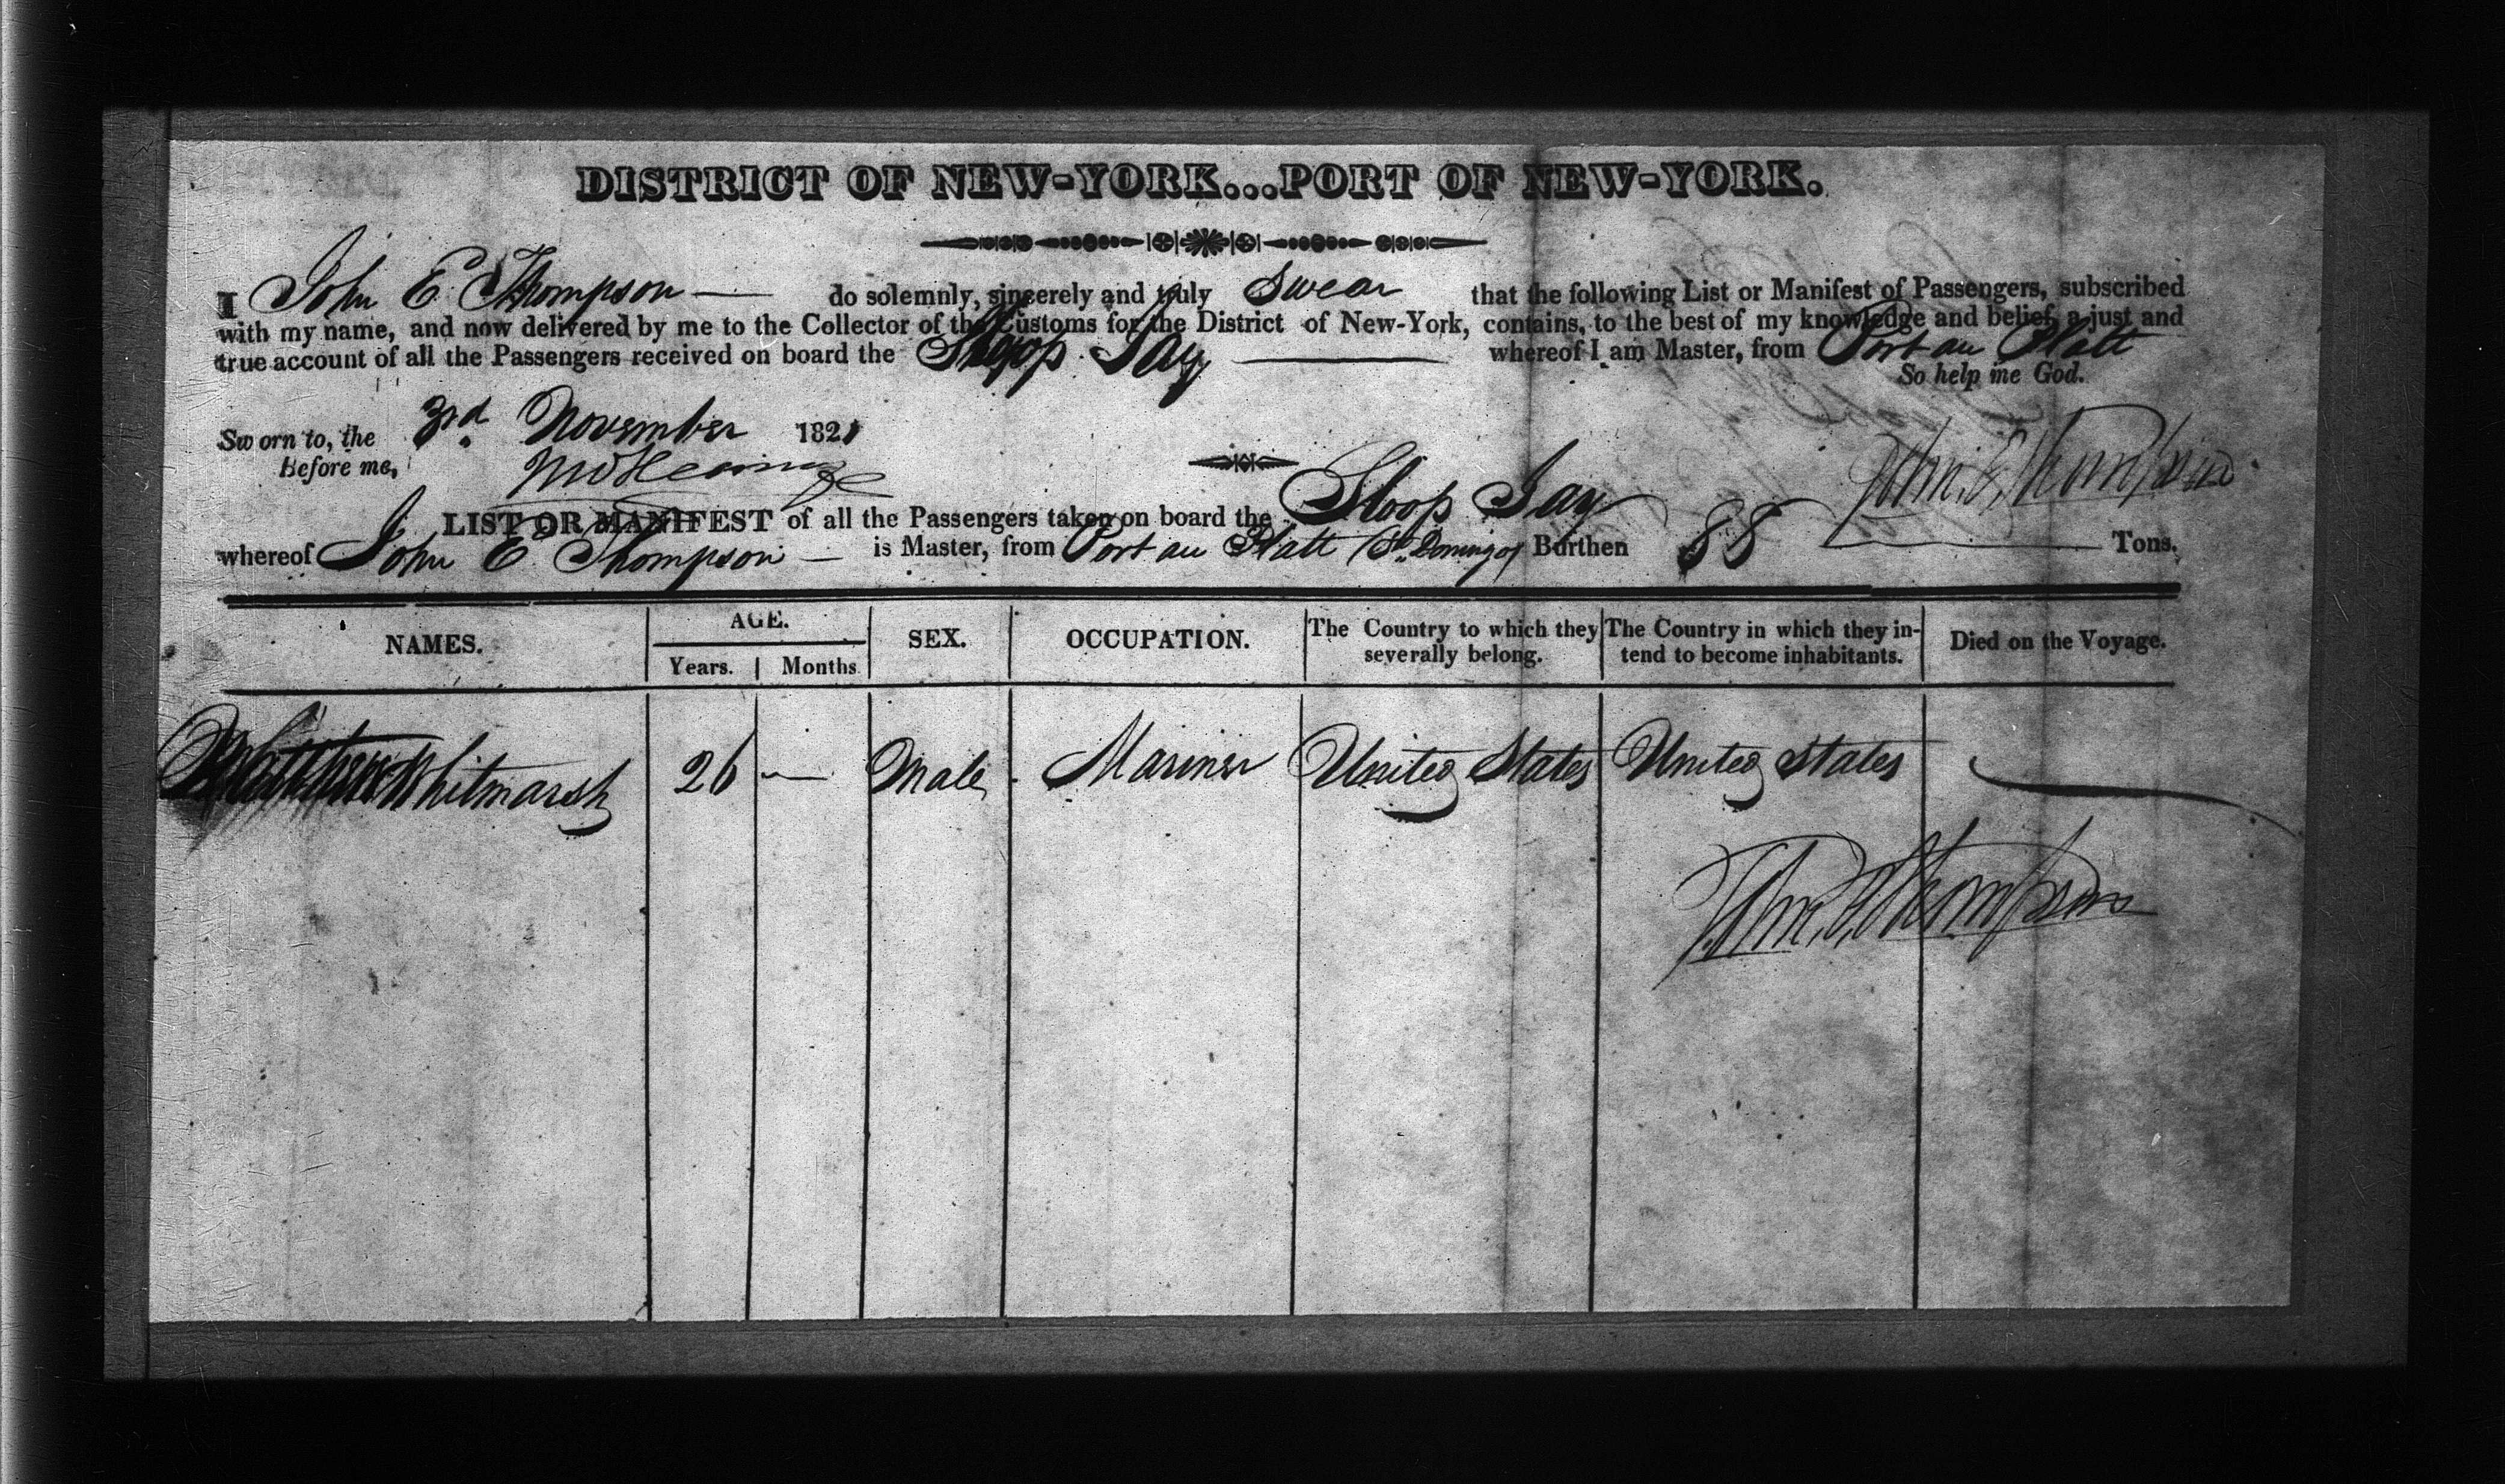 DISTRICT OF NEW-YORK...PORT OF NEW-YORK.
I John E Thompson — do solemnly, sincerely and truly Swear that the following List or Manifest of Passengers, subscribed
with my name, and now delivered by me to the Collector of the Customs for the District of New-York, contains, to the best of my knowledge and belief, a just and
true account of all the Passengers received on board the Sloop Jay — whereof I am Master, from Port au Platt
So help me God.
Sworn to, the 3rd November 1821
Before me,
John E Thompson
LIST OR MANIFEST of all the Passengers taken on board the Sloop Jay
whereof John E Thompson — is Master, from Port au Platt (St Domingo) Burthen 88 — Tons.
NAMES. AGE. SEX. OCCUPATION. The Country to which they severally belong. The Country in which they intend to become inhabitants. Died on the Voyage.
Years. Months.
Matthew Whitmarsh 26 — Male Mariner United States United States —
John E Thompson